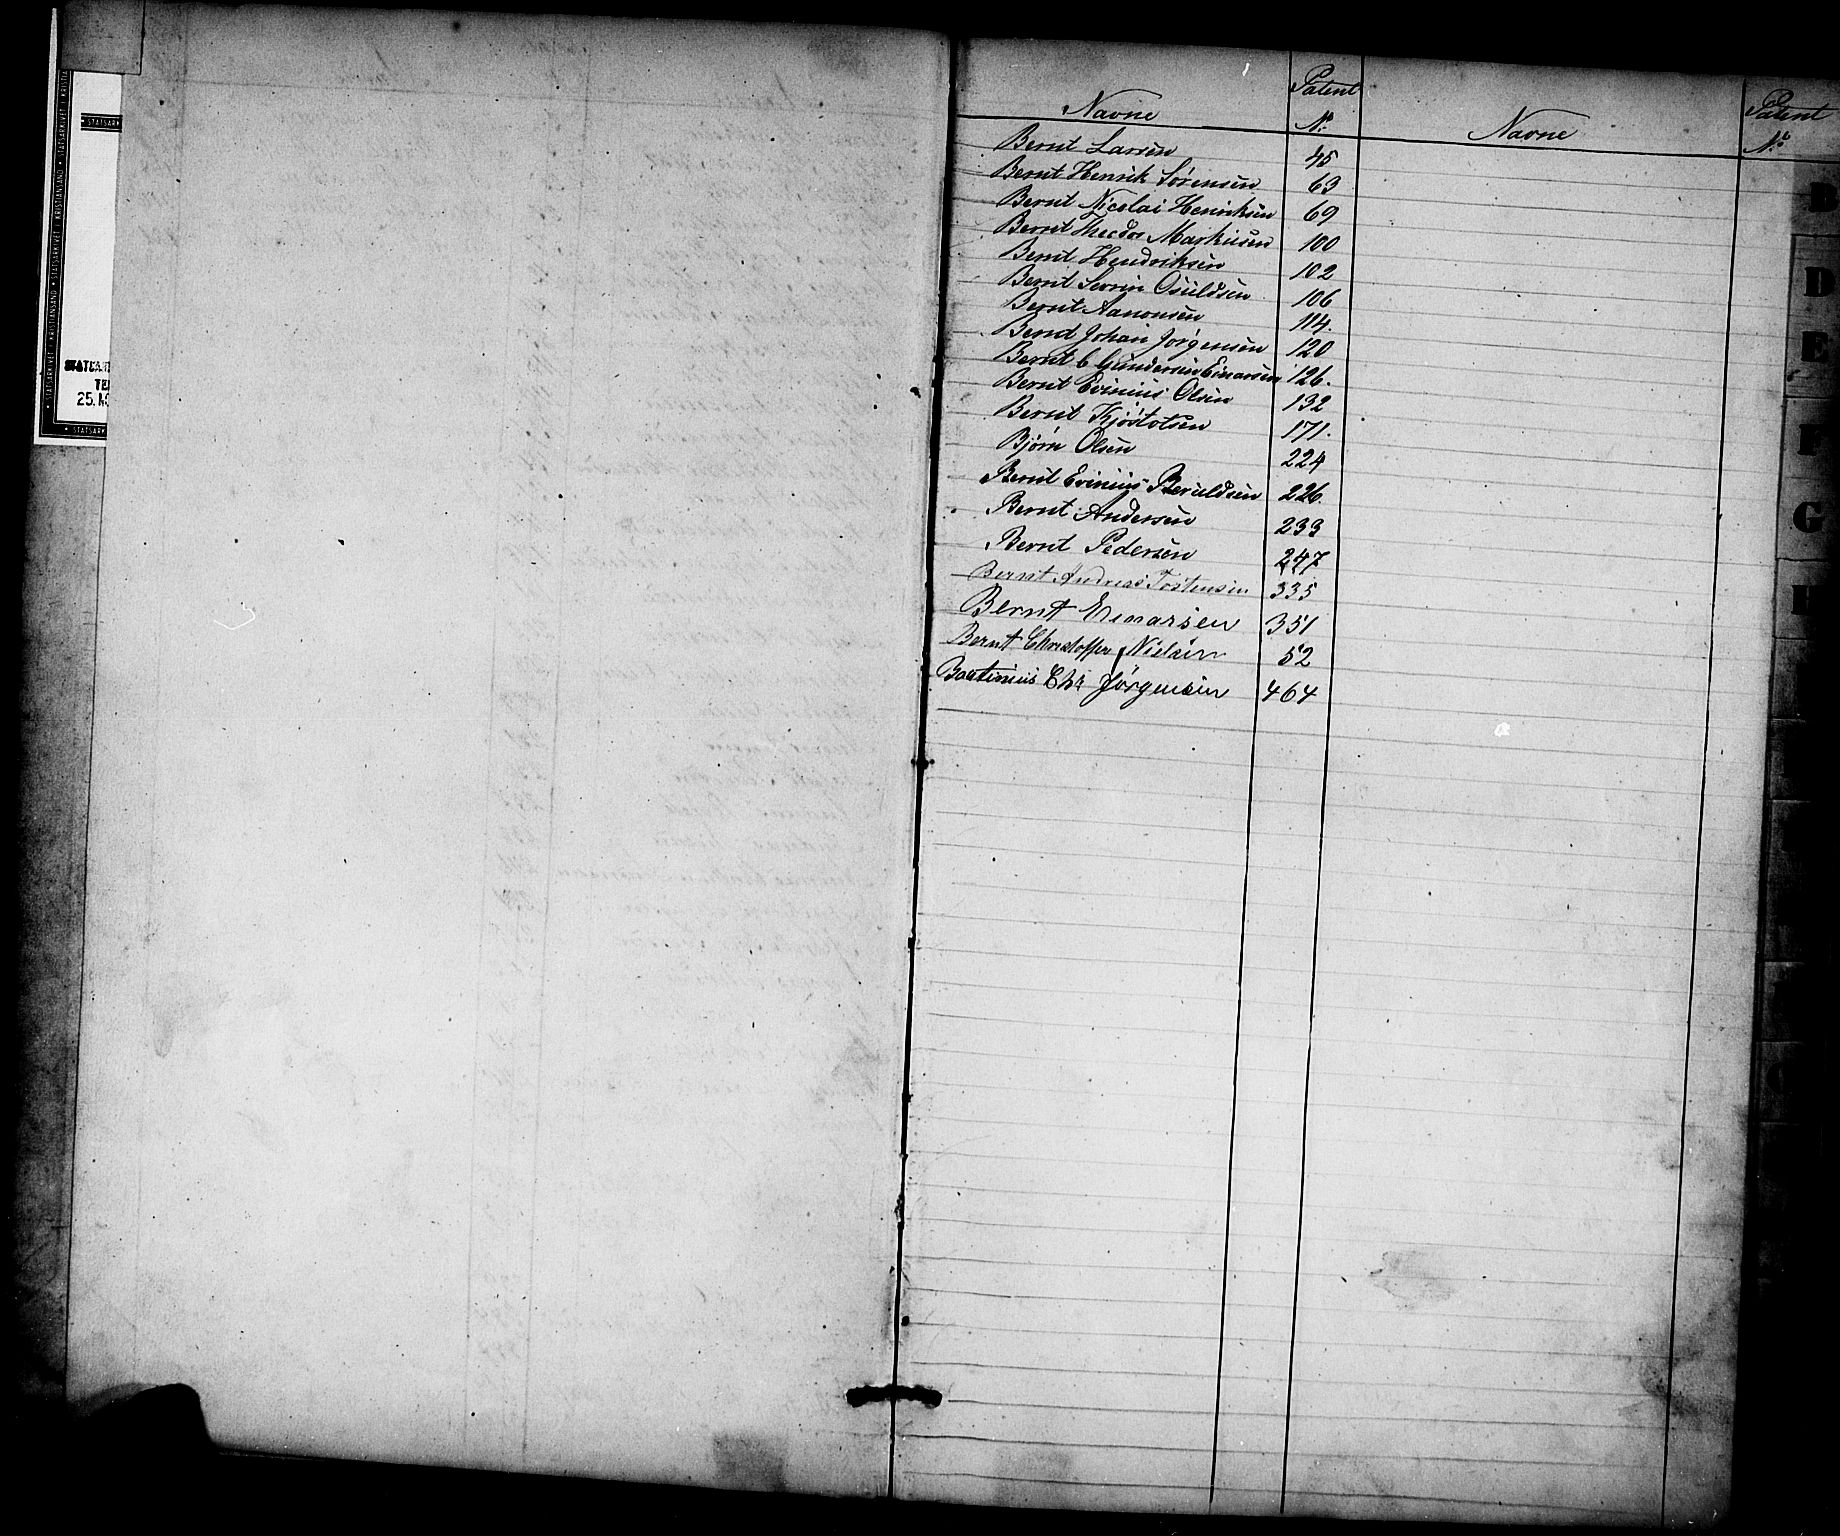 Navne Patent Nº Navne Patent Nº
Bernt Larsen 45
Bernt Henrik Sørensen 63
Bernt Nicolai Henriksen 69
Bernt Theodor Markusen 100
Bernt Hendriksen 102
Bernt Severin Osuldsen 106
Bernt Aanonsen 114.
Bernd Johan Jørgensen 120
Bernt C Gundersen Einarsen 126.
Bernt Evinius Olsen 132
Bernt Kjøstolsen 171.
Bjørn Olsen 224
Bernt Evinius Beruldsen 226.
Bernt Andersen 233
Bernt Pedersen 247
Bernt Andreas Tostensen 335
Bernt Einarsen 351
Bernt Christoffer Nielsen 52
Bastinius Chr Jørgensen 464
B
D
E
F
G
H
STATSARKIVET I KRISTIANSAND
25. NO